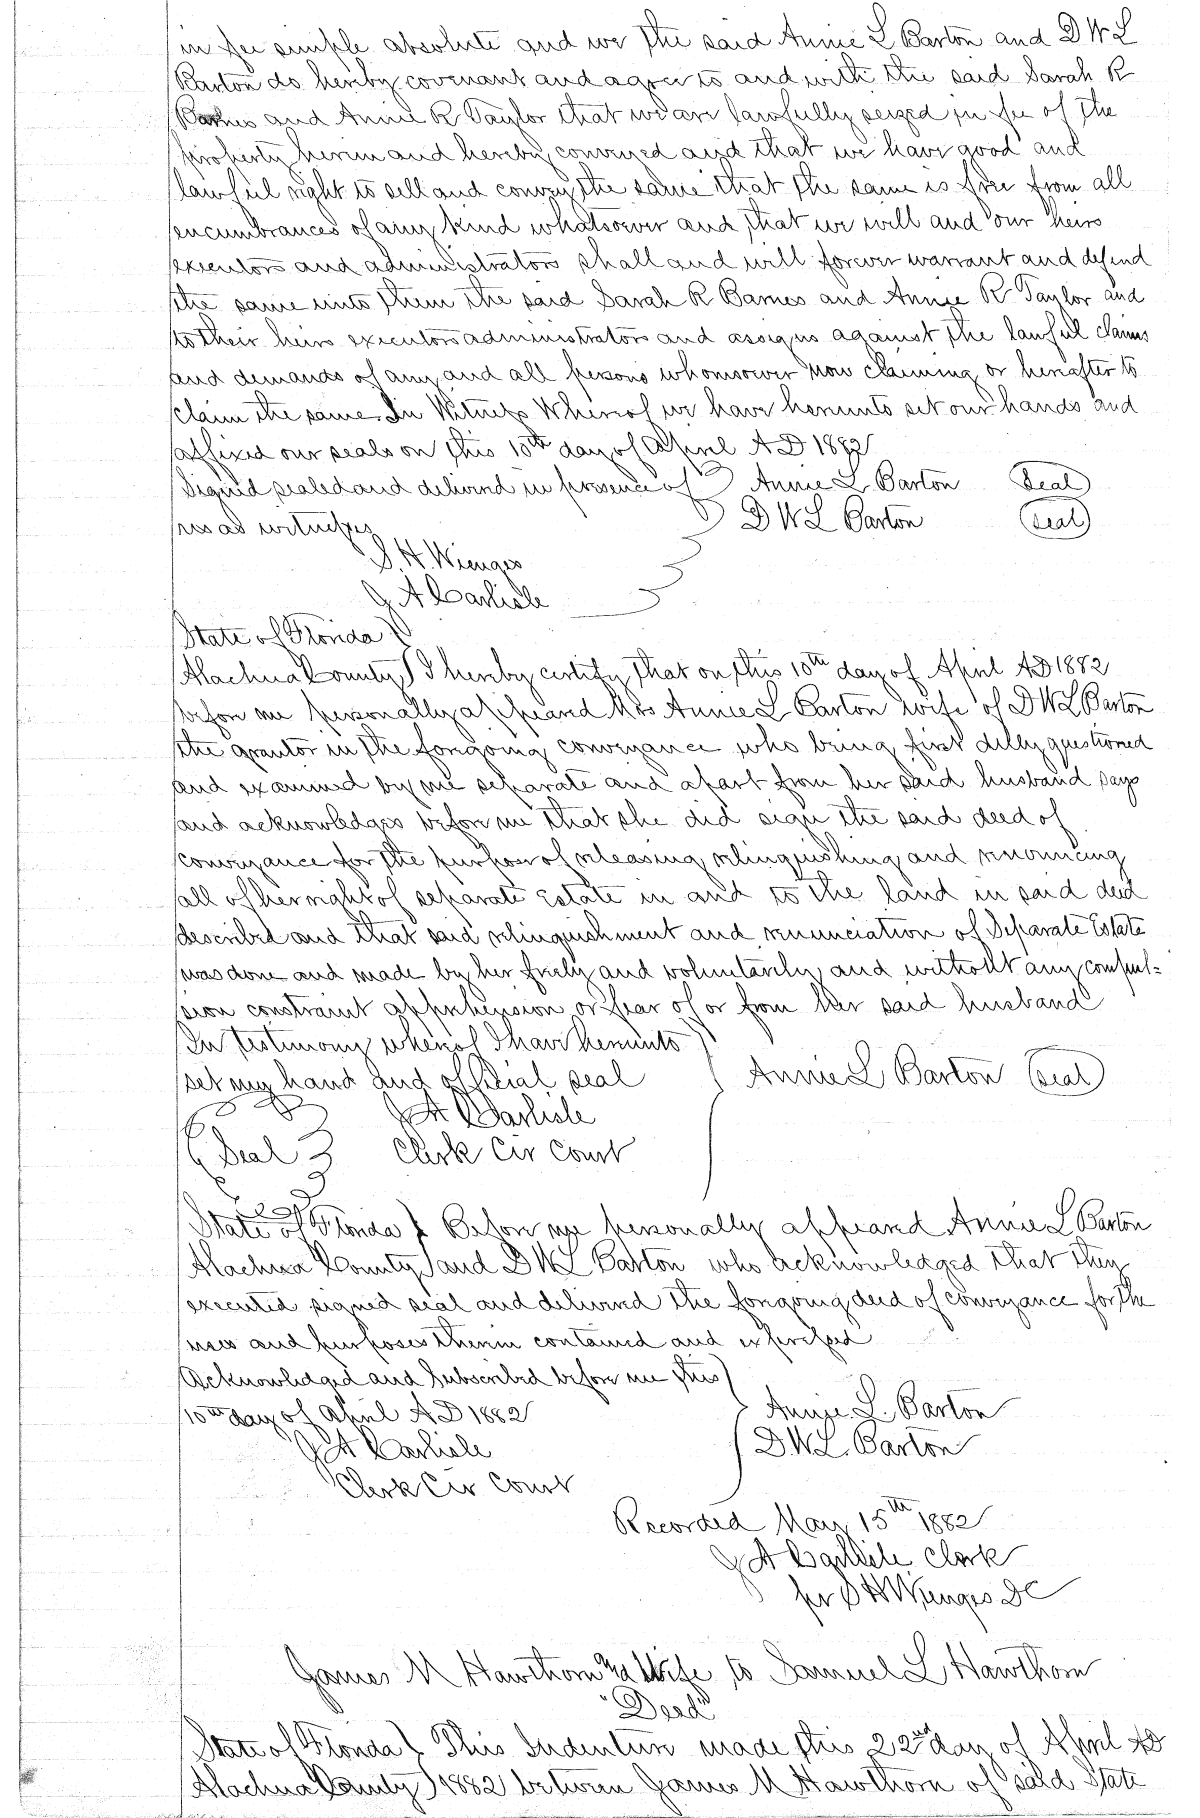 in fee simple absolute and we the said Annie L Barton and D W L
Barton do hereby covenant and agree to and with the said Sarah R
Barnes and Annie R Taylor that we are lawfully seized in fee of the
property herein and hereby conveyed and that we have good and
lawful right to sell and convey the same that the same is free from all
encumbrances of any kind whatsoever and that we will and our heirs
executors and administrators shall and will forever warrant and defend
the same unto them the said Sarah R Barnes and Annie R Taylor and
to their heirs executors administrators and assigns against the lawful claims
and demands of any and all persons whomsoever now claiming or hereafter to
claim the same In Witness Whereof we have hereunto set our hands and
affixed our seals on this 10th day of April A D 1882
Signed sealed and delivered in presence of Annie L Barton Seal
us as witnesses D W L Barton Seal
S. H. Wienges
J A Carlisle
State of Florida
Alachua County I hereby certify that on this 10th day of April AD 1882
before me personally appeared Mrs Annie L Barton wife of D W L Barton
the grantor in the foregoing conveyance who being first dilly questioned
and examined by me separate and apart from her said husband says
and acknowledges before me that she did sign the said deed of
conveyance for the purpose of releasing relinquishing and renouncing
all of her right of separate Estate in and to the land in said deed
described and that said relinquishment and renunciation of Separate Estate
was done and made by her freely and voluntarily and without any compul=
sion constraint apprehension or fear of or from her said husband
In testimony whereof I have hereunto
set my hand and official seal Annie L Barton Seal
J A Carlisle
Seal Clerk Cir Court
State of Florida Before me personally appeared Annie L Barton
Alachua County and D W L Barton who acknowledged that they
executed signed seal and delivered the foregoing deed of conveyance for the
uses and purposes therein contained and expressed
Acknowledged and Subscribed before me this
10th day of April A D 1882 Annie L. Barton
J A Carlisle D. W. L. Barton
Clerk Cir Court
Recorded May 15th 1882
J A Carlisle Clerk
per S H Wienges DC
James M Hawthorn and Wife to Samuel L Hawthorn
"Deed"
State of Florida This Indenture made this 22nd day of April AD
Alachua County 1882 between James M Hawthorn of said State